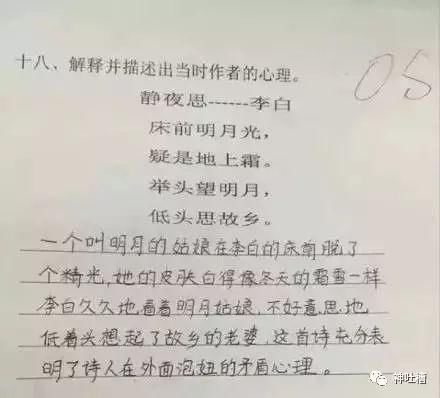 十八、解释并描述出当时作者的心理。
05
静夜思------李白
床前明月光，
疑是地上霜。
举头望明月，
低头思故乡。
一个叫明月的姑娘在李白的床前脱了
个精光，她的皮肤白得像冬天的霜雪一样
李白久久地看着明月姑娘，不好意思地
低着头想起了故乡的老婆，这首诗充分表
明了诗人在外面泡妞的矛盾心理。
神吐槽